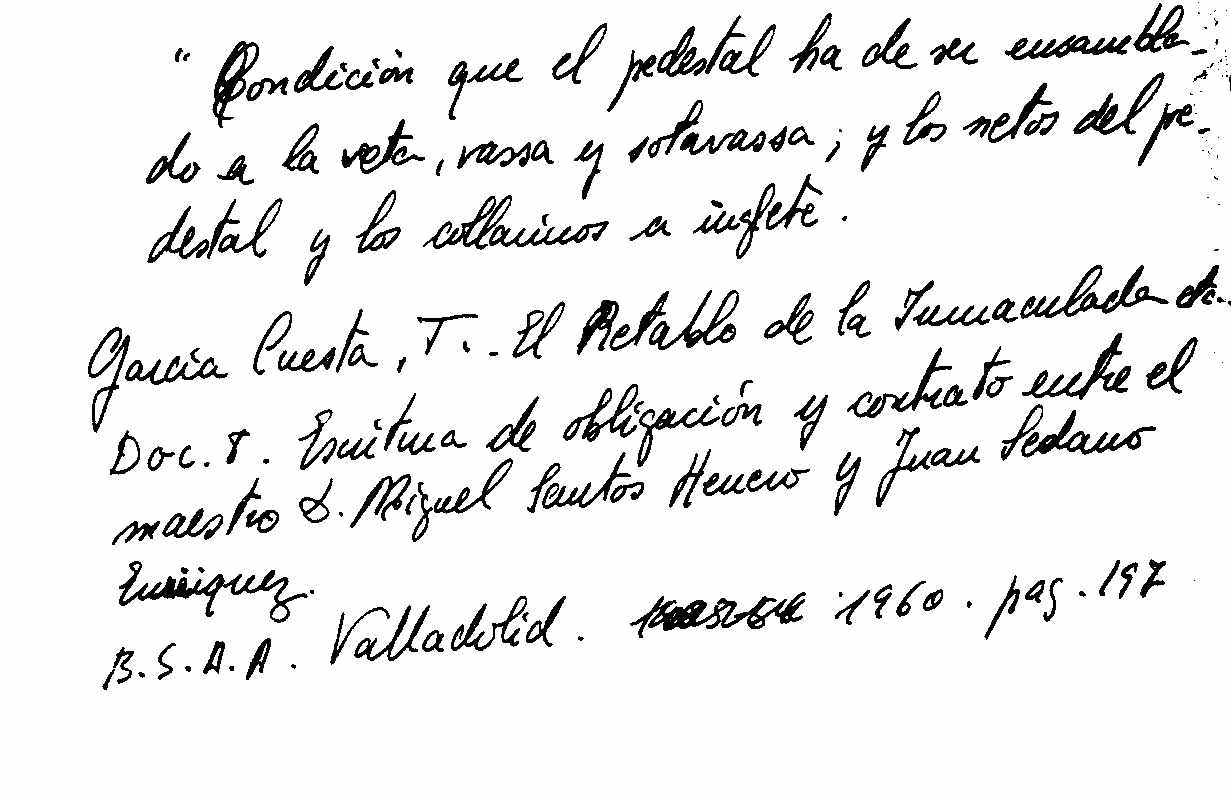 " Condición que el pedestal ha de ser ensambla-
do a la veta, vassa y sotavassa; y los netos del pe-
destal y los collarinos a inglete.
García Cuesta, T.. El Retablo de la Inmaculada etc.
Doc. 8. Escritura de obligación y contrato entre el
maestro D. Miguel Santos Henero y Juan Sedano
Enriquez.
B.S.A.A. Valladolid. 1960. pag. 197